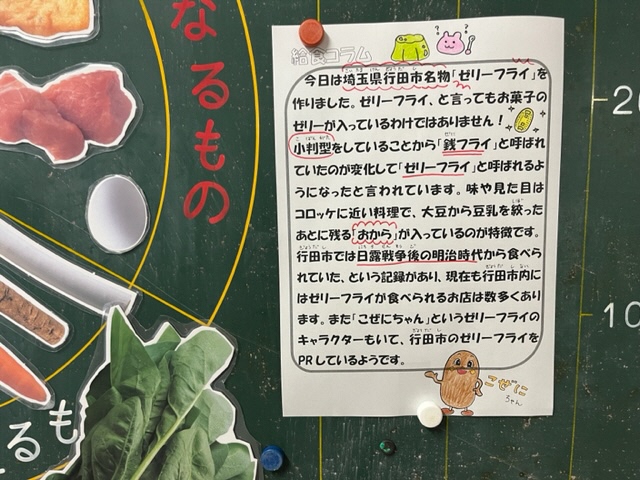 なるもの
給食コラム
今日は埼玉県行田市名物「ゼリーフライ」を
作りました。ゼリーフライ、と言ってもお菓子の
ゼリーが入っているわけではありません!
小判型をしていることから「銭フライ」と呼ばれ
ていたのが変化して「ゼリーフライ」と呼ばれるよ
うになったと言われています。味や見た目は
コロッケに近い料理で、大豆から豆乳を絞った
あとに残る「おから」が入っているのが特徴です。
行田市では日露戦争後の明治時代から食べら
れていた、という記録があり、現在も行田市内に
はゼリーフライが食べられるお店は数多くあり
ます。また「こぜにちゃん」というゼリーフライの
キャラクターもいて、行田市のゼリーフライを
PRしているようです。
こぜに
ちゃん
20
10
るも